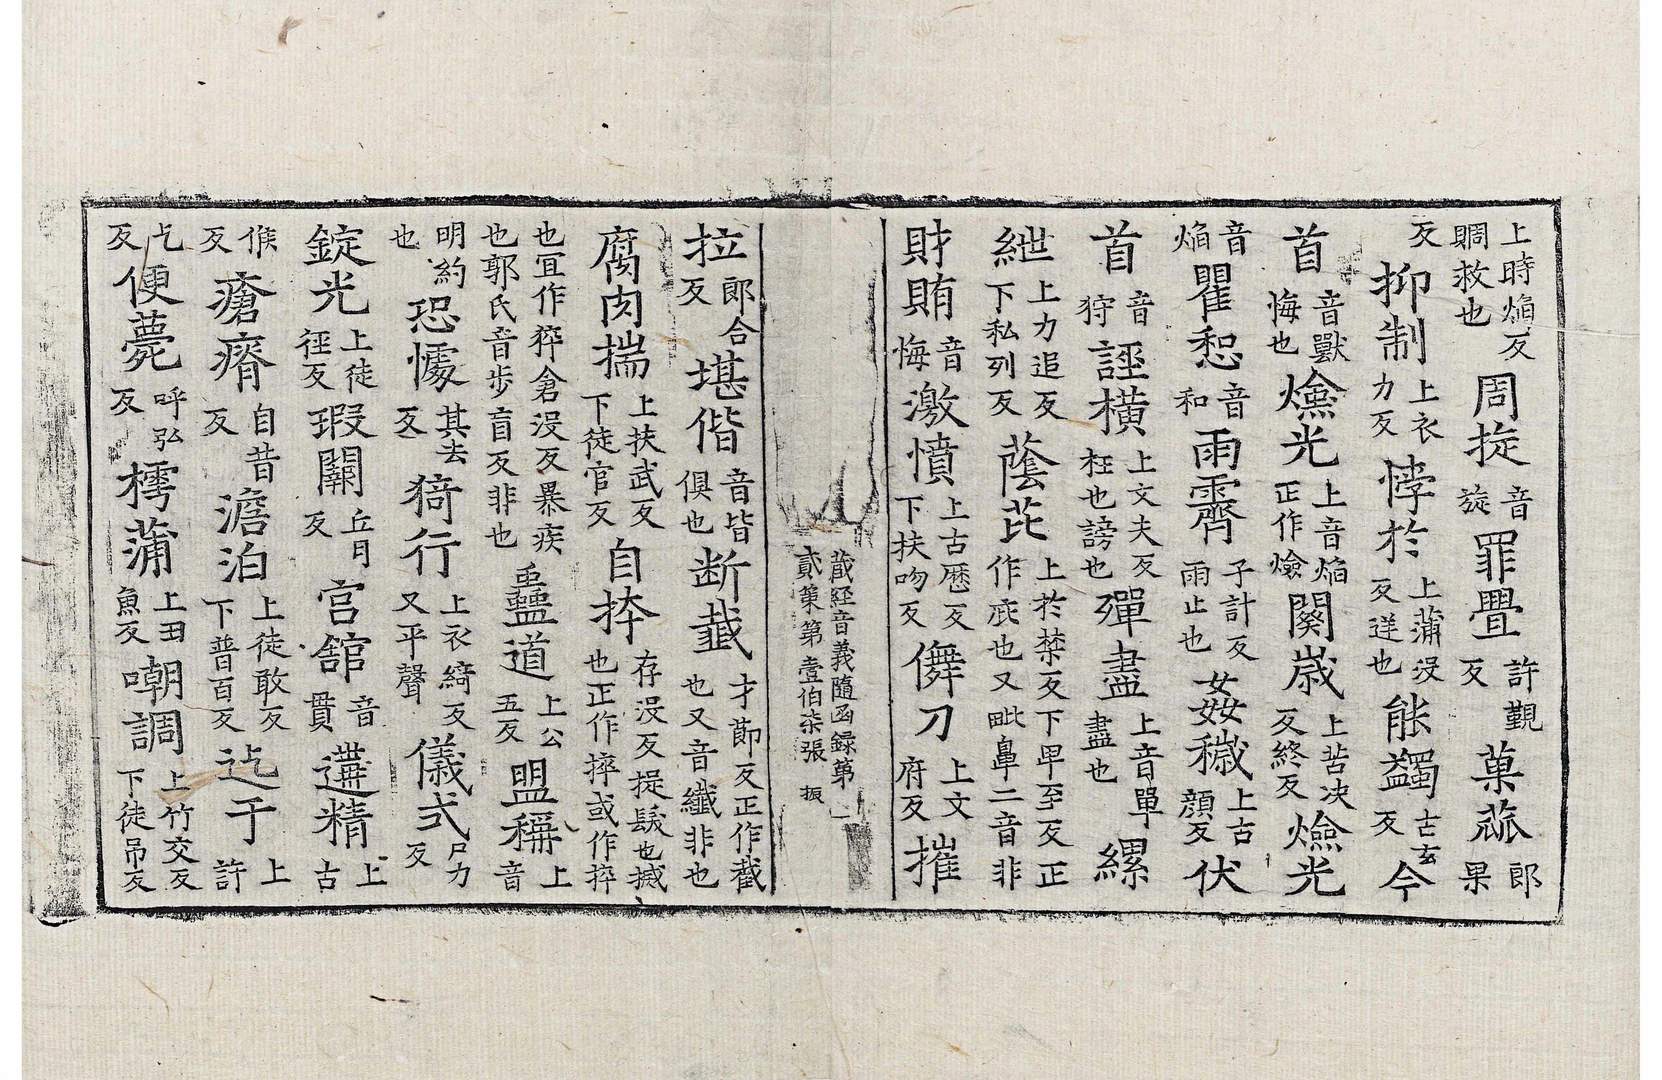 上時焔反賙救也周㨁音旋罪舋許覲反菓蓏郎果
反抑制上衣力反悖於上蒲没反逆也能蠲古玄反今
首音獸悔也燄光上音焔正作爓闋歲上苦决反終反燄光
音焔瞿惒音和雨霽子計反雨止也姦穢上古顔反伏
首音狩誣橫上文夫反枉也謗也殫盡上音單盡也縲
紲上力追反下私列反蔭芘上於禁反下卑至反正作庇也又毗鼻二音非
財賄音悔激憤上古歷反下扶吻反儛刀上文府反摧
藏經音義隨函録第一
貳第第壹伯柒張 振
拉郎合反堪偕音皆俱也断韱才莭反正作截也又音纖非也
腐肉揣上扶武反下徒官反自捽存没反捉髮也搣也正作摔或作捽
也冝作猝倉没反暴疾也郭氏音步盲反非也蠱道上公五反盟穪上音
明約也恐懅其去反猗行上衣綺反又平聲儀式尸力反
錠光上徒徑反瑕闢丘日反宫舘音貫遘精上古
候反瘡瘠自昔反澹泊上徒敢反下普百反迄于上許
乞反便薨呼弘反樗蒲上丑魚反嘲調上竹交反下徒吊反